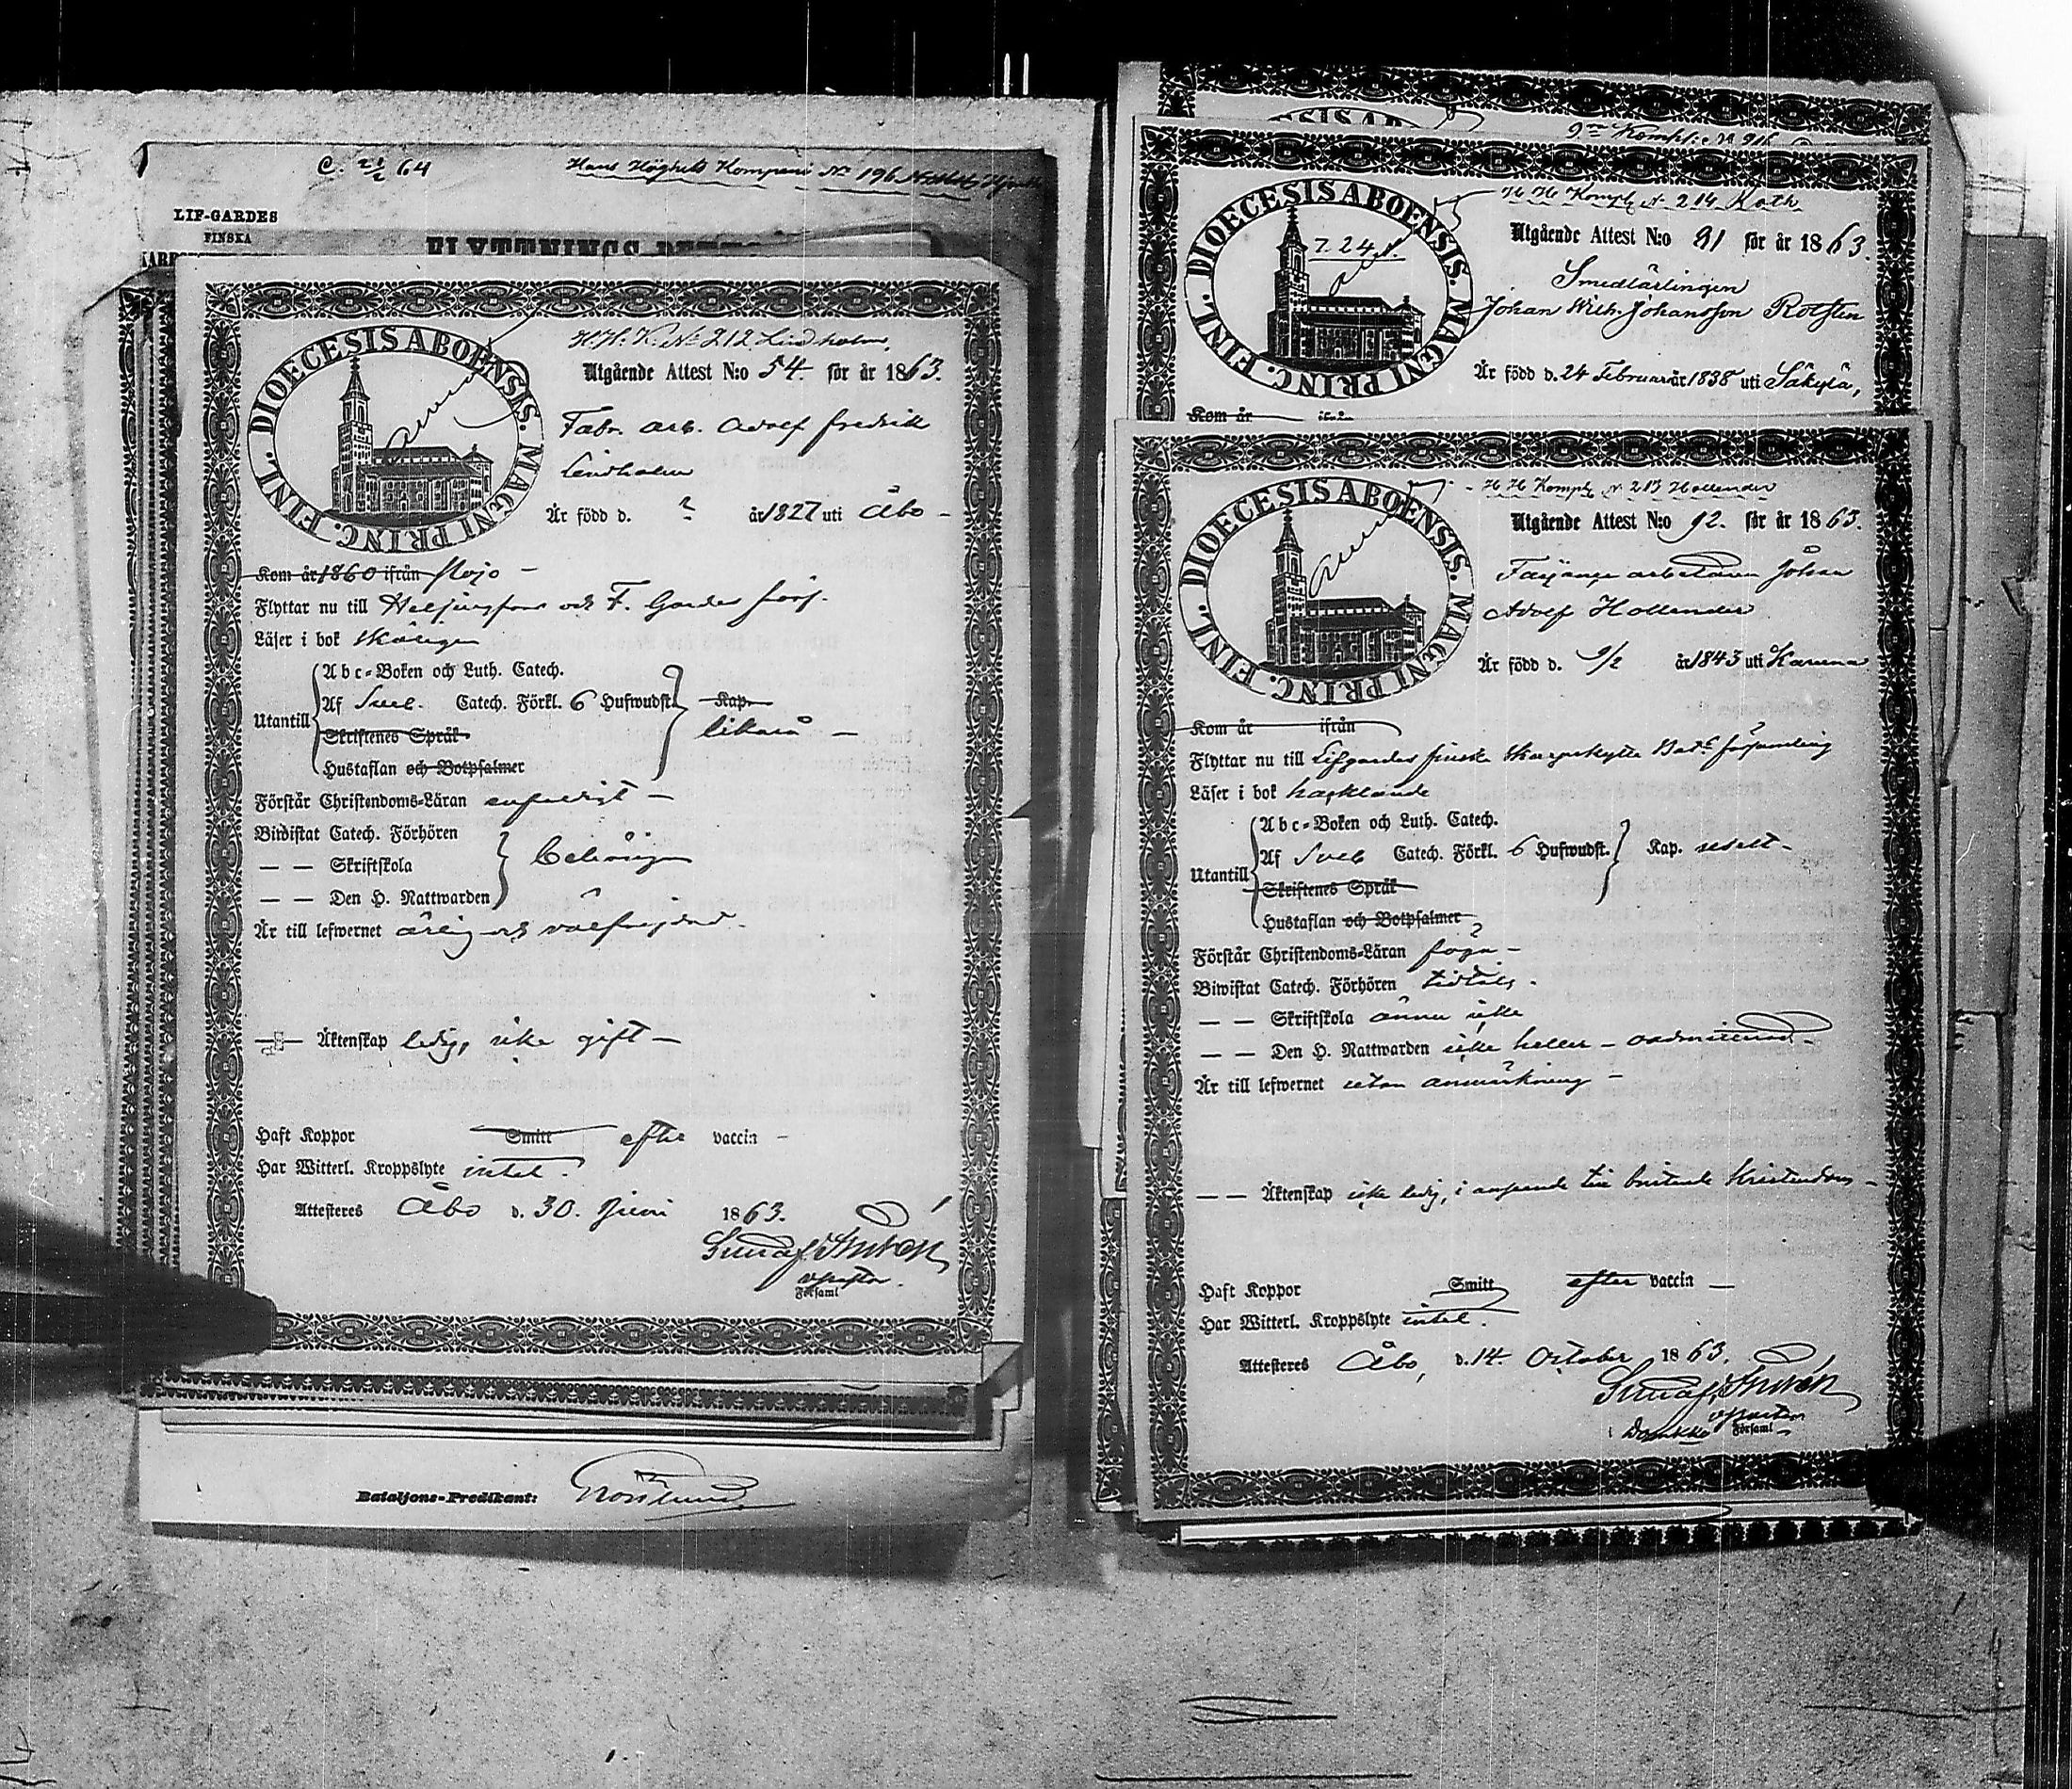 C. 21/2 64
Hans Höghets Kompani No 196
LIF-GARDES
FINSKA
FLYTTNINGS-BETYG
DIOECESIS ABOENSIS. MAGNI PRINC. FINL.
H. H. K. No 212 Lindholm.
Utgående Attest N:o 54. för år 1863.
Fabr. arb. Adolf Fredrik
Lindholm
Är född d. ? år 1827 uti Åbo –
Kom år 1860 ifrån
Flyttar nu till Helsingfors och F. Gardes förs.
Läser i bok
Abc-Boken och Luth. Catech.
Utantill Af Sveb. Catech. Förkl. 6 Hufwudst. Kap.
Skriftenes Språk
likaså –
Hustaflan och Botpsalmer
Förstår Christendoms-Läran enfaldigt –
Biwistat Catech. Förhören
— — Skriftskola
behörigen
— — Den H. Nattwarden
Är till lefwernet ärlig och välfrejdad.
Äktenskap ledig, icke gift –
Haft Koppor Smitt efter vaccin –
Har Witterl. Kroppslyte intet.
Attesteres Åbo d. 30. Juni 1863.
Församl
Bataljons-Predikant:
9de Komp:s No 916
DIOECESIS ABOENSIS. MAGNI PRINC. FINL.
H H Komp No 214 Roth
Utgående Attest N:o 91 för år 1863.
Smedlärlingen
Johan Wilh. Johansson Rotsten
Är född d. 24 Februari år 1838 uti Säkylä,
Kom år ifrån
DIOECESIS ABOENSIS. MAGNI PRINC. FINL.
H H Komp No 213 Hollender
Utgående Attest N:o 92. för år 1863.
Fayance arbetaren Johan
Adolf Hollender
Är född d. 9/2 år 1843 uti Karuna
Kom år ifrån
Flyttar nu till Lifgardes finska Skarpskytte Bat. församling
Läser i bok hacklande
Abc-Boken och Luth. Catech.
Utantill Af Sveb Catech. Förkl. 6 Hufwudst. Kap. uselt –
Skriftenes Språk
Hustaflan och Botpsalmer
Förstår Christendoms-Läran föga –
Biwistat Catech. Förhören tidtals.
— — Skriftskola ännu icke
— — Den H. Nattwarden icke heller – oadmitterad –
Är till lefwernet utan anmärkning –
— — Äktenskap icke ledig, i anseende till bristande Kristendom –
Haft Koppor Smitt efter vaccin —
Har Witterl. Kroppslyte intet.
Attesteres Åbo, d. 14. October 1863.
i Domkko Församl